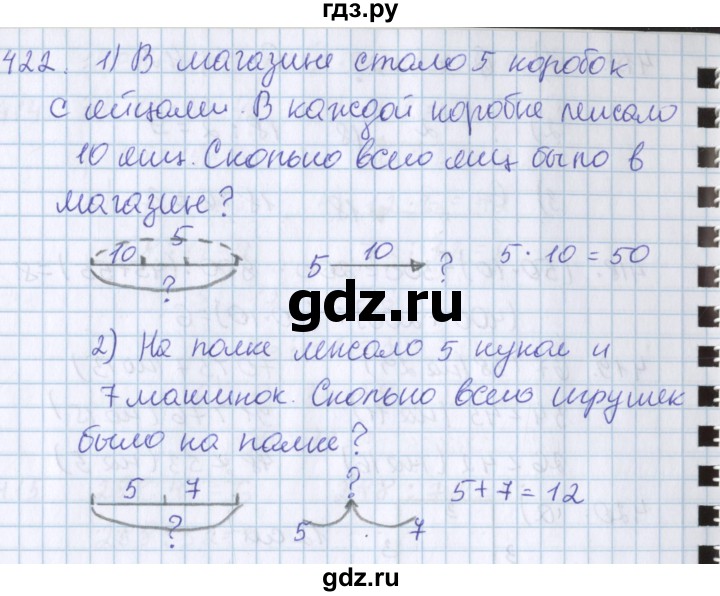 гдз.ру
422. 1) В магазине стало 5 коробок
с яйцами. В каждой коробке лежало
10 яиц. Сколько всего яиц было в
магазин?
5
10
?
5 10 ?
5 · 10 = 50
gdz.ru
2) На полке лежало 5 кукол и
7 машинок. Сколько всего игрушек
было на полке?
5 7
?
?
5 7
5 + 7 = 12
gdz.ru